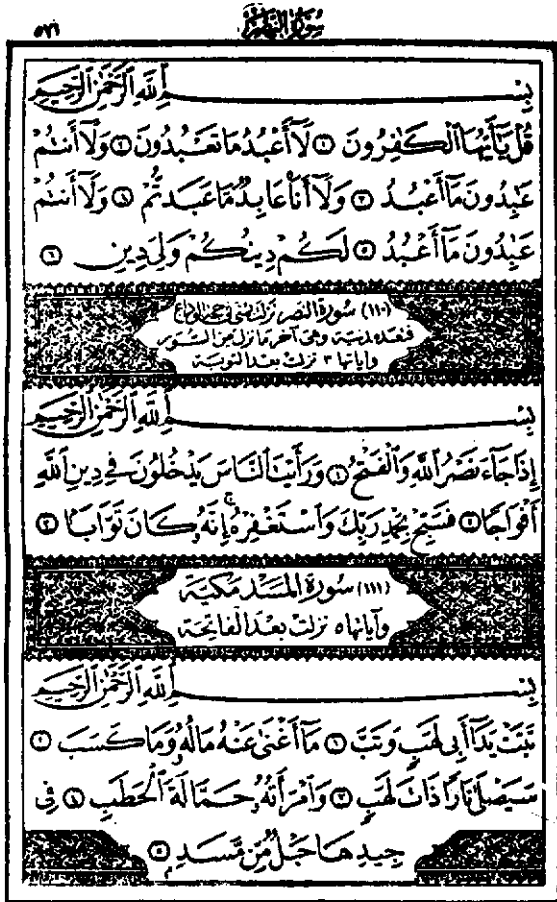 ٥٧١ سورة النصر
بِسْمِ ٱللَّهِ ٱلرَّحْمَٰنِ ٱلرَّحِيمِ
قُلْ يَٰٓأَيُّهَا ٱلْكَٰفِرُونَ ١ لَآ أَعْبُدُ مَا تَعْبُدُونَ ٢ وَلَآ أَنتُمْ
عَٰبِدُونَ مَآ أَعْبُدُ ٣ وَلَآ أَنَا۠ عَابِدٌ مَّا عَبَدتُّمْ ٤ وَلَآ أَنتُمْ
عَٰبِدُونَ مَآ أَعْبُدُ ٥ لَكُمْ دِينُكُمْ وَلِىَ دِينِ ٦
(١١٠) سورة النصر نزلت بمنى في حجة الوداع
فتعد مدنية وهى آخر ما نزل من السور
وآياتها ٣ نزلت بعد التوبة
بِسْمِ ٱللَّهِ ٱلرَّحْمَٰنِ ٱلرَّحِيمِ
إِذَا جَآءَ نَصْرُ ٱللَّهِ وَٱلْفَتْحُ ١ وَرَأَيْتَ ٱلنَّاسَ يَدْخُلُونَ فِى دِينِ ٱللَّهِ
أَفْوَاجًا ٢ فَسَبِّحْ بِحَمْدِ رَبِّكَ وَٱسْتَغْفِرْهُ ۚ إِنَّهُۥ كَانَ تَوَّابًۢا ٣
(١١١) سورة المسد مكية
وآياتها ٥ نزلت بعد الفاتحة
بِسْمِ ٱللَّهِ ٱلرَّحْمَٰنِ ٱلرَّحِيمِ
تَبَّتْ يَدَآ أَبِى لَهَبٍ وَتَبَّ ١ مَآ أَغْنَىٰ عَنْهُ مَالُهُۥ وَمَا كَسَبَ ٢
سَيَصْلَىٰ نَارًا ذَاتَ لَهَبٍ ٣ وَٱمْرَأَتُهُۥ حَمَّالَةَ ٱلْحَطَبِ ٤ فِى
جِيدِهَا حَبْلٌ مِّن مَّسَدٍۭ ٥